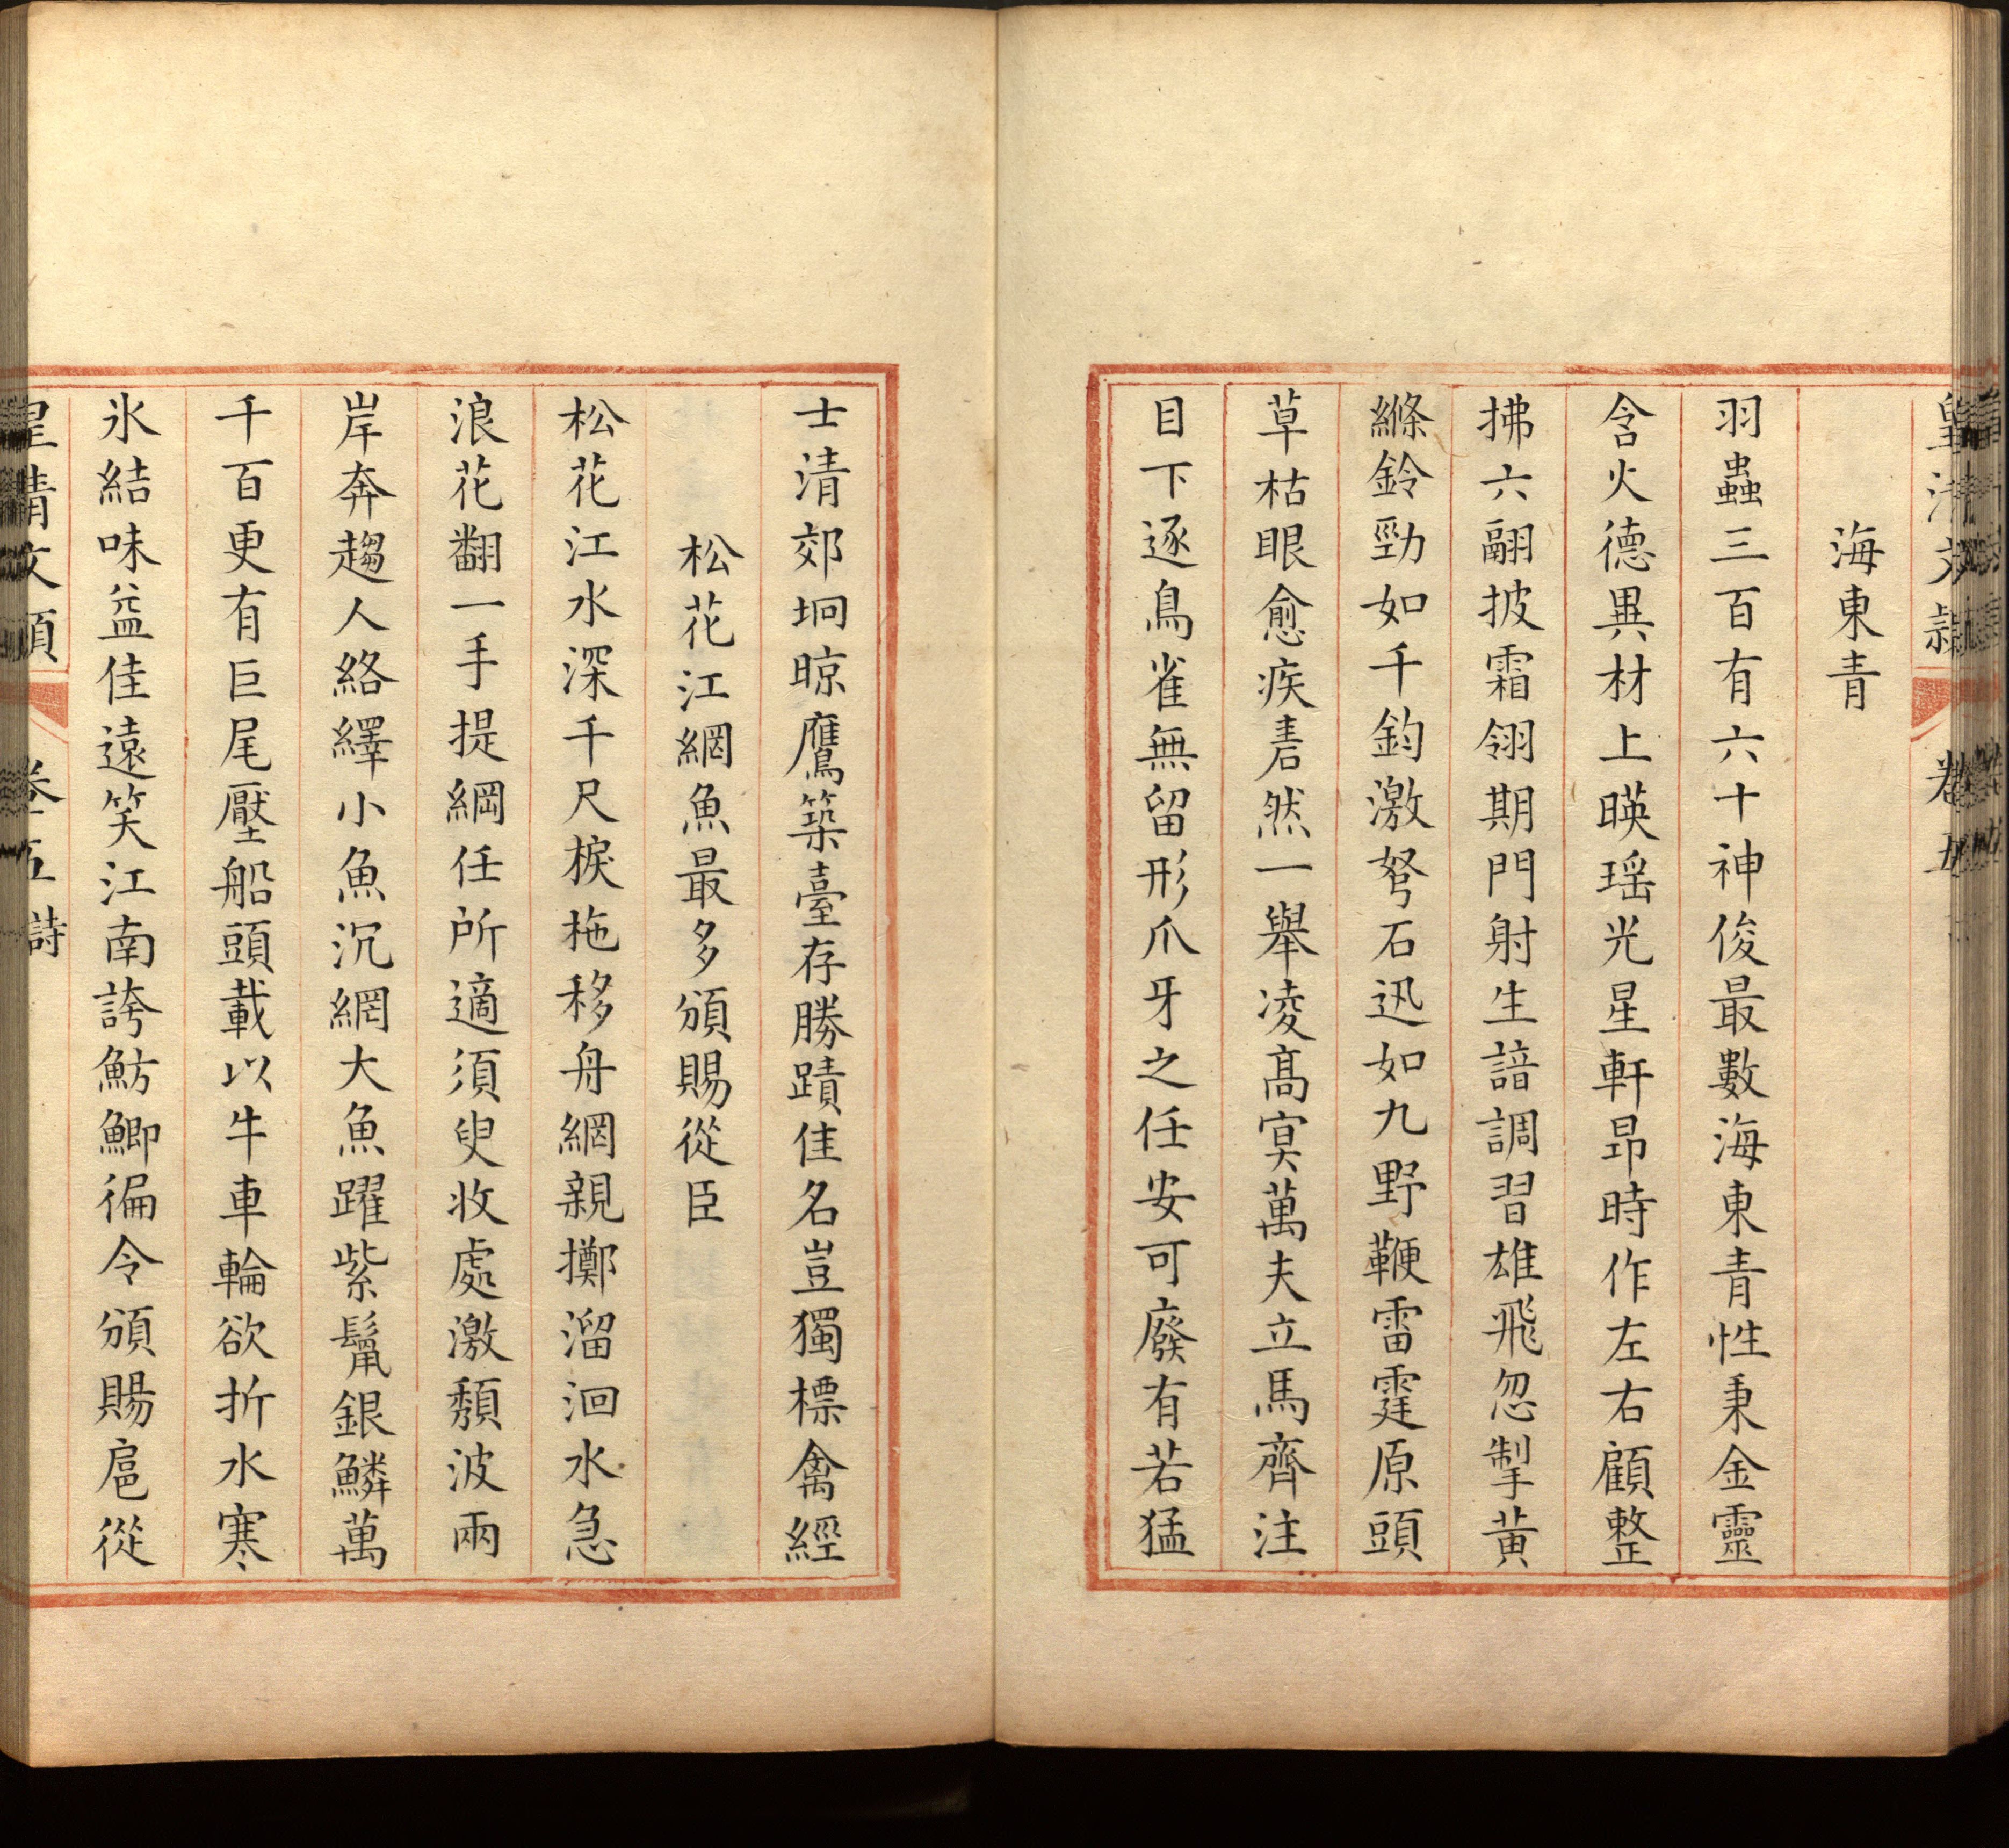 皇清文穎 卷五
海東青
羽蟲三百有六十神俊最數海東青性秉金靈
含火德異材上暎瑶光星軒昂時作左右顧整
拂六翮披霜翎期門射生諳調習雄飛忽掣黄
縧鈴勁如千鈞激弩石迅如九野鞭雷霆原頭
草枯眼愈疾砉然一舉凌髙冥萬夫立馬齊注
目下逐鳥雀無留形爪牙之任安可廢有若猛
士清郊坰晾鷹築臺存勝蹟佳名豈獨標禽經
松花江網魚最多頒賜從臣
松花江水深千尺捩柁移舟網親擲溜洄水急
浪花翻一手提綱任所適須臾收處激頽波兩
岸奔趨人絡繹小魚沉網大魚躍紫鬣銀鱗萬
千百更有巨尾壓船頭載以牛車輪欲折水寒
氷結味益佳遠笑江南誇魴鯽徧令頒賜扈從
皇清文穎 卷五 詩